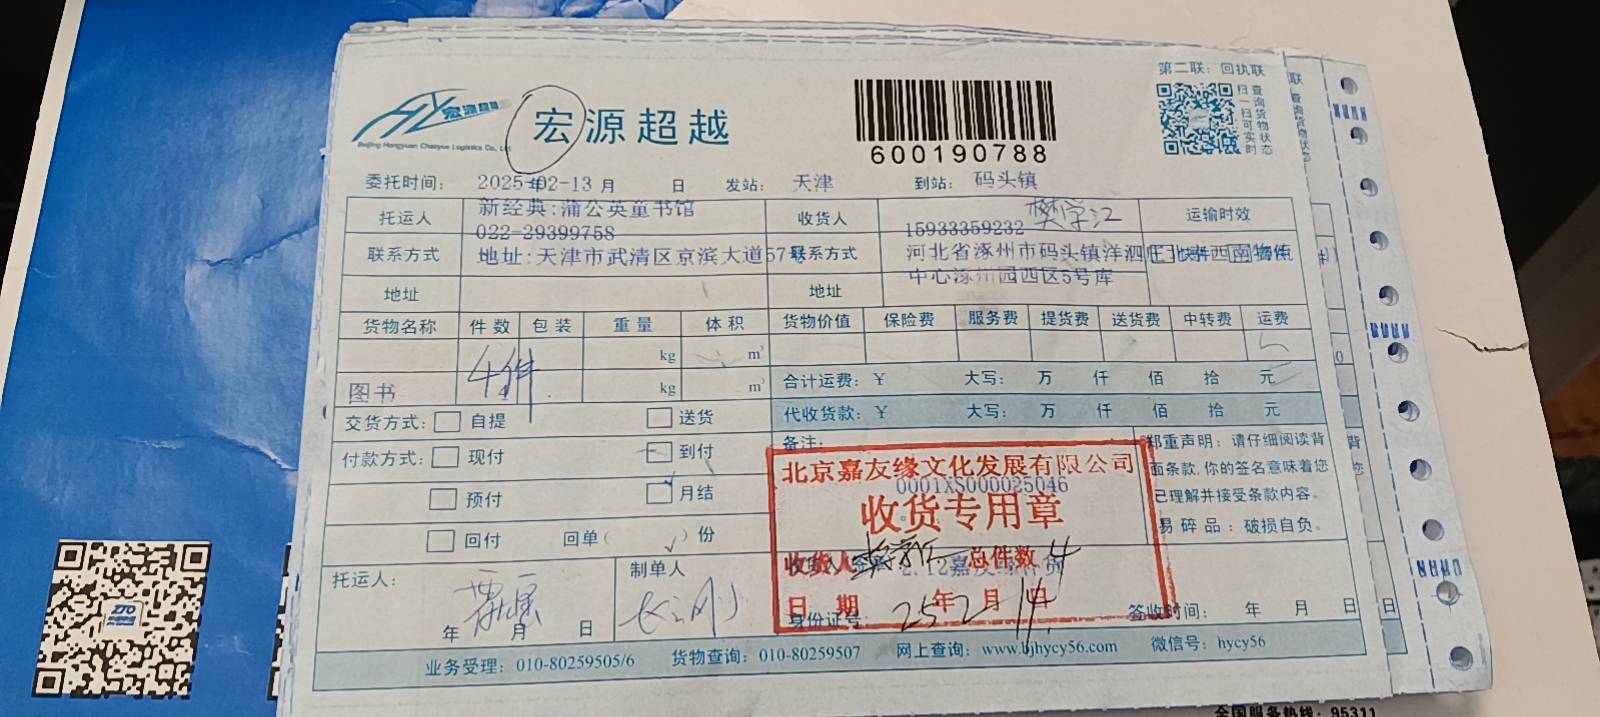 第二联：回执联
宏源超越
宏源超越
Beijing Hongyuan Chaoyue Logistics Co., Ltd
600190788
扫一扫可实时
查询货物状态
委托时间： 2025年02-13 月 日 发站： 天津 到站： 码头镇
托运人 新经典:蒲公英童书馆 收货人 樊学江 运输时效
022-29399758 15933359232
联系方式 地址:天津市武清区京滨大道57号 联系方式 河北省涿州市码头镇洋泗庄北京西南物流
中心涿州园西区5号库
地址 地址
货物名称 件数 包装 重量 体积 货物价值 保险费 服务费 提货费 送货费 中转费 运费
4件 kg m³
图书 4 kg m³ 合计运费：￥ 大写： 万 仟 佰 拾 元
交货方式： 自提 送货 代收货款：￥ 大写： 万 仟 佰 拾 元
付款方式： 现付 到付 备注：
预付 月结
回付 回单( ✓ )份
郑重声明：请仔细阅读背
面条款,你的签名意味着您
已理解并接受条款内容。
易碎品：破损自负。
北京嘉友缘文化发展有限公司
0001XS000025046
收货专用章
收货人 总件数 4
日期 25年2月14日
托运人： 制单人
年 月 日
身份证号： 签收时间： 年 月 日
业务受理：010-80259505/6 货物查询：010-80259507 网上查询：www.bjhycy56.com 微信号：hycy56
ZTO
全国服务热线：95311